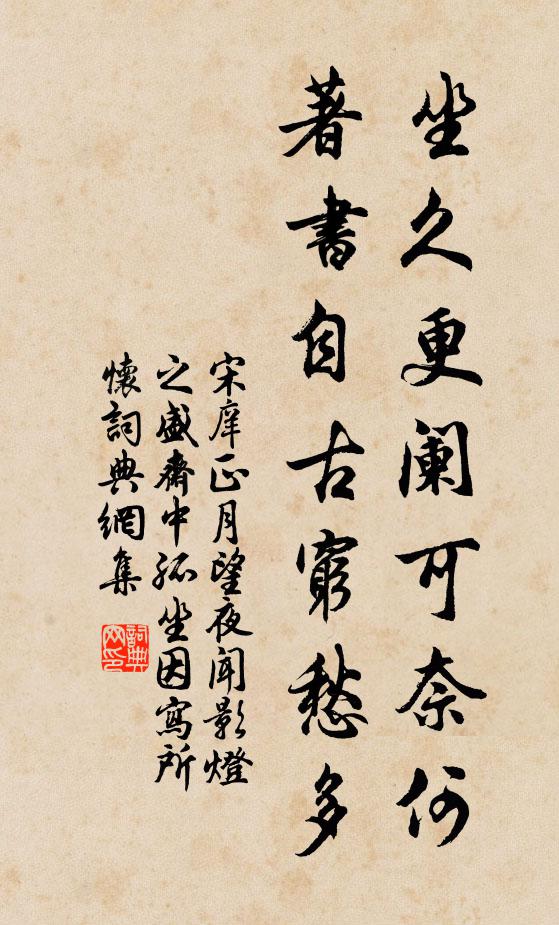 坐久更阑可奈何
著書自古窮愁多
宋庠正月望夜聞影燈
之盛齋中孤坐因寫所
懷詞典網集
詞典
网印